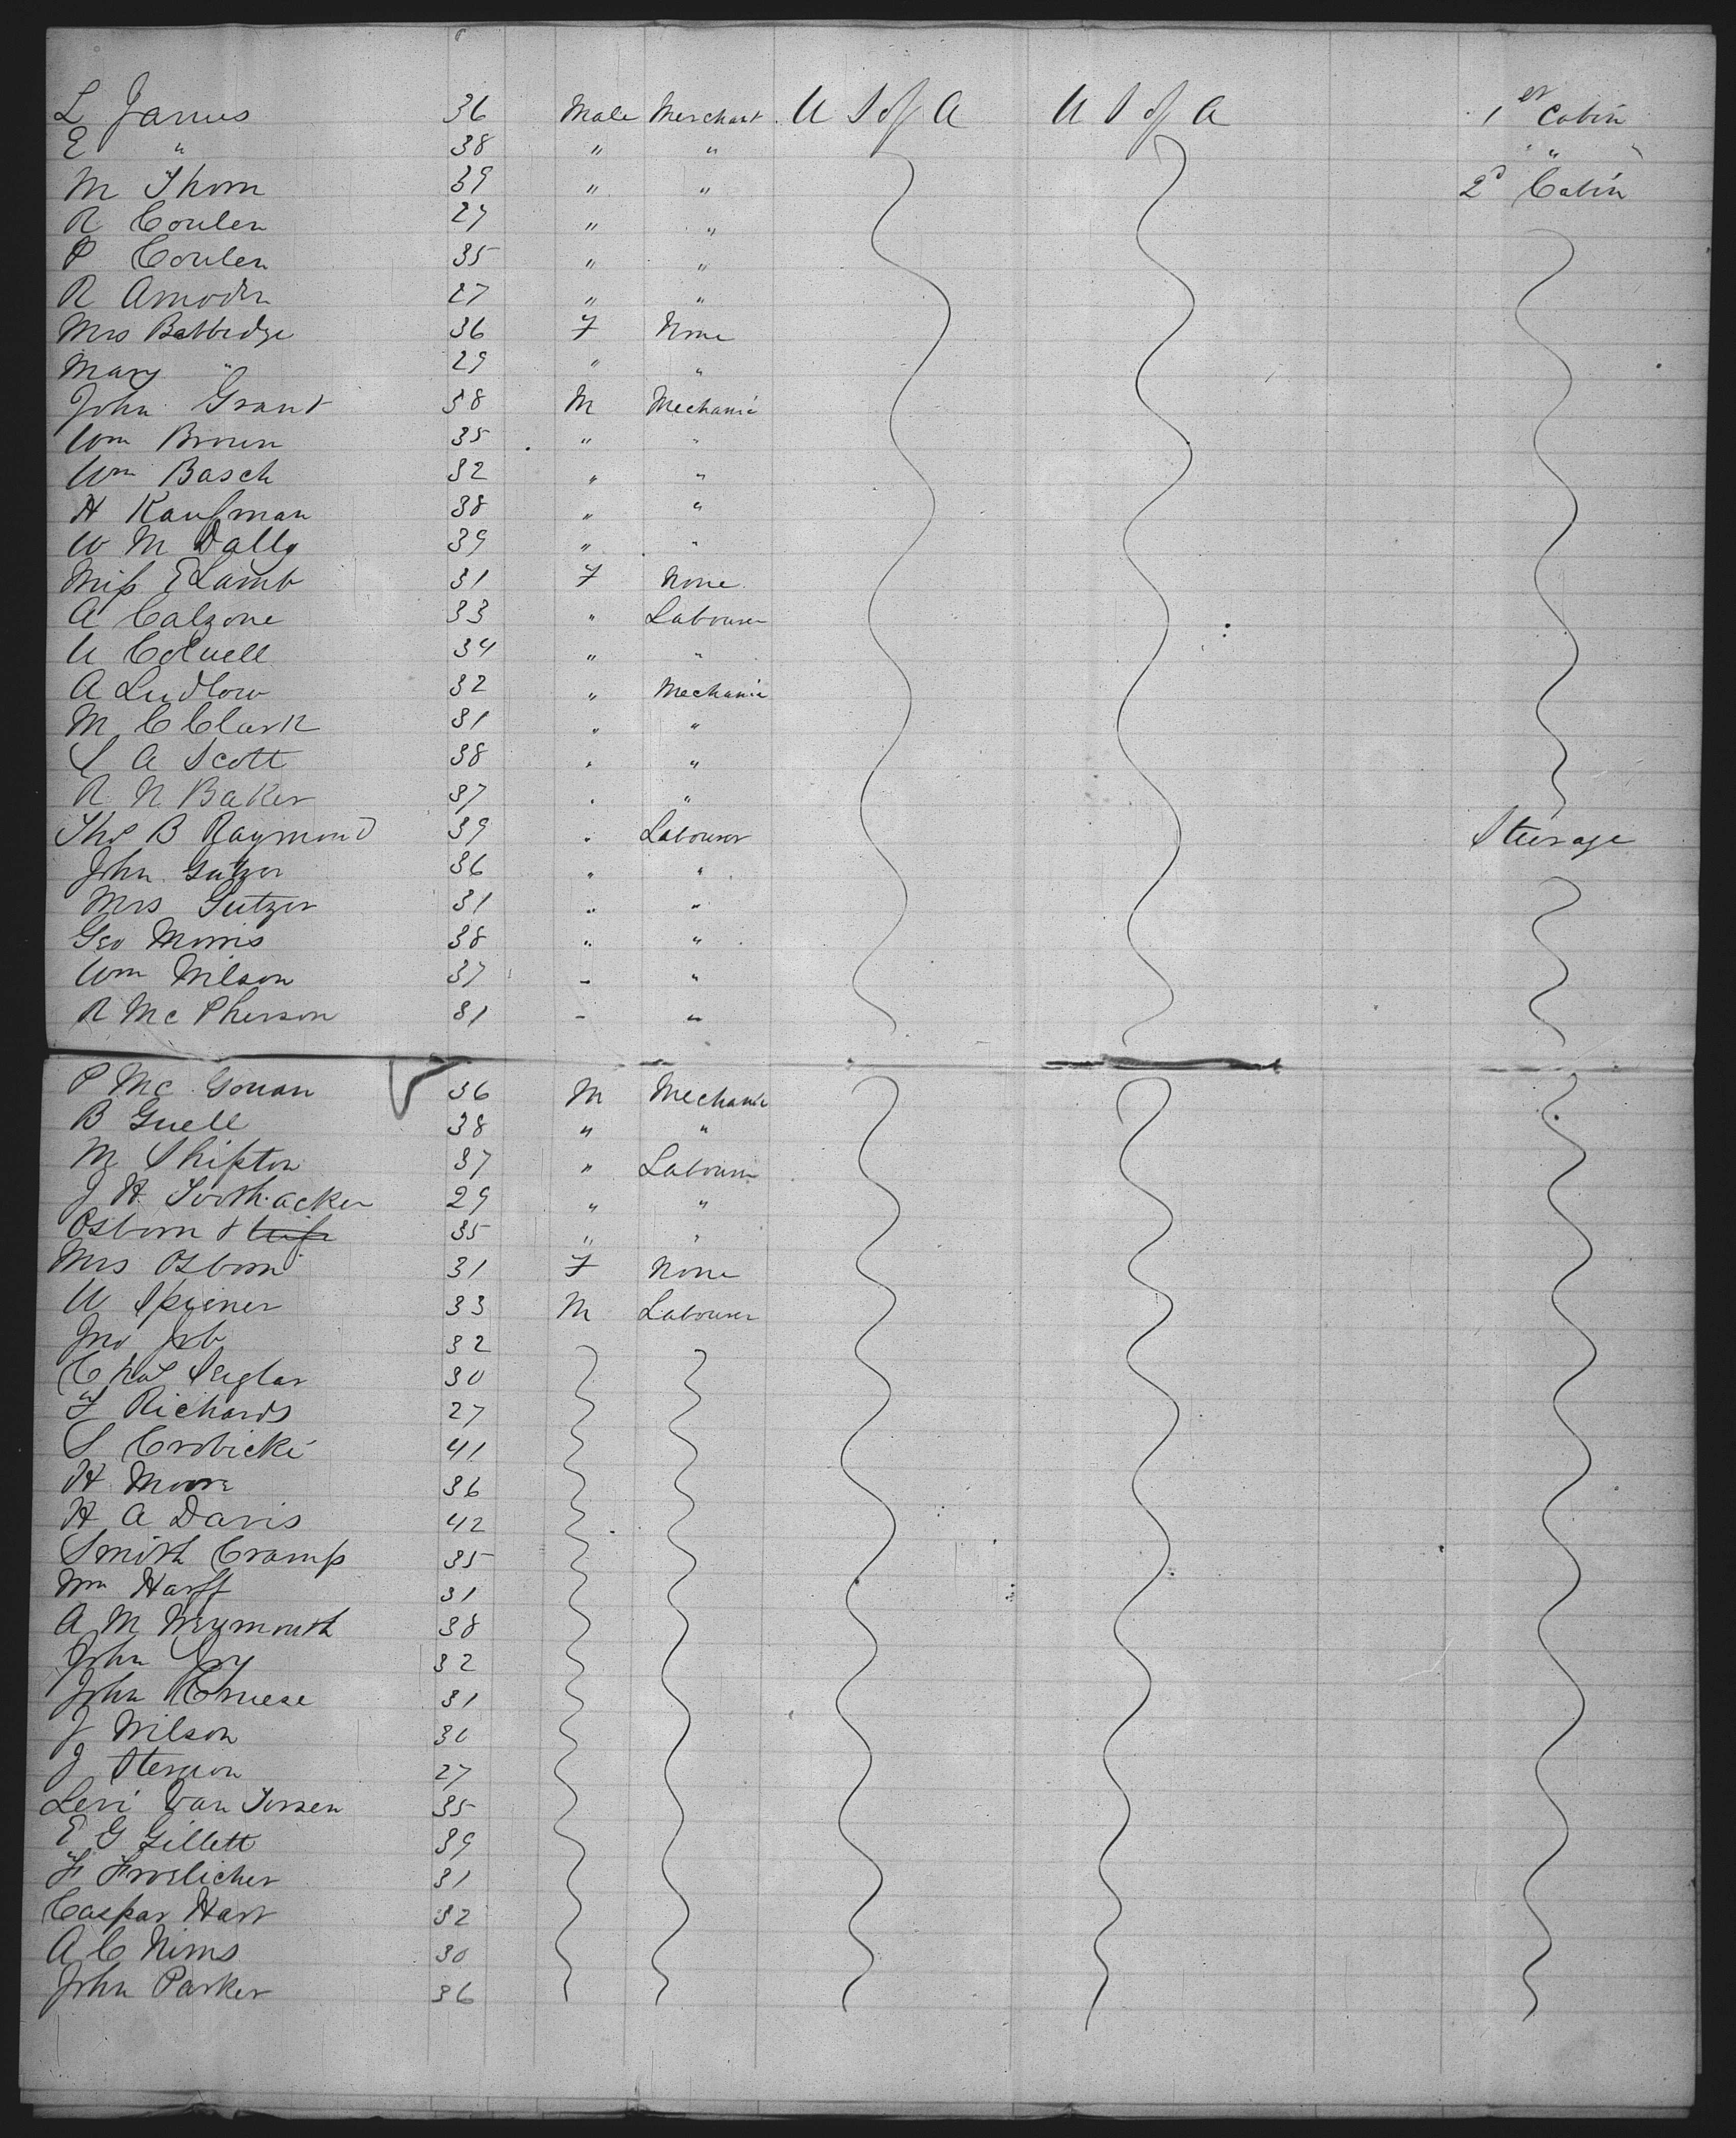 L Janus 36 Male Merchant U S of A U S of A 1st Cabin
E " 38 " " " "
M Thom 39 " " 2d Cabin
R Coulen 27 " "
P Coulen 35 " "
R Amoden 27 " "
Mrs Babbedge 36 F None
Mary " 29 " "
John Grant 38 M Mechanic
Wm Brown 35 " "
Wm Basch 32 " "
H Kaufman 38 " "
W M Dally 39 " "
Miss E Lamb 31 F None
A Calzone 33 " Labourer
U Colwell 34 " "
A Ludlow 32 " Mechanic
M C Clark 31 " "
S A Scott 38 " "
R N Baker 37 " "
Thos B Raymond 39 " Labourer Steerage
John Gutzer 36 " "
Mrs Gutzer 31 " "
Geo Morris 38 " "
Wm Wilson 37 " "
R McPherson 31 " "
P Mc Gouan 36 M Mechanic
B Guell 38 " "
M Shipton 37 " Labourer
J H Toothacker 29 " "
Osborn & wife 35 " "
Mrs Osborn 31 F None
W Spiener 33 M Labourer
Jno Job 32
Chas Seglar 30
F Richards 27
S Crobicke 41
H Moore 36
H A Davis 42
Smith Cramp 35
Wm Harff 31
A M Weymouth 38
John Joy 32
John Cruese 31
J Wilson 30
J 27
Levi Van 35
E G Gillett 39
F Froelicher 31
Caspar Hart 32
A C Nims 30
John Parker 36